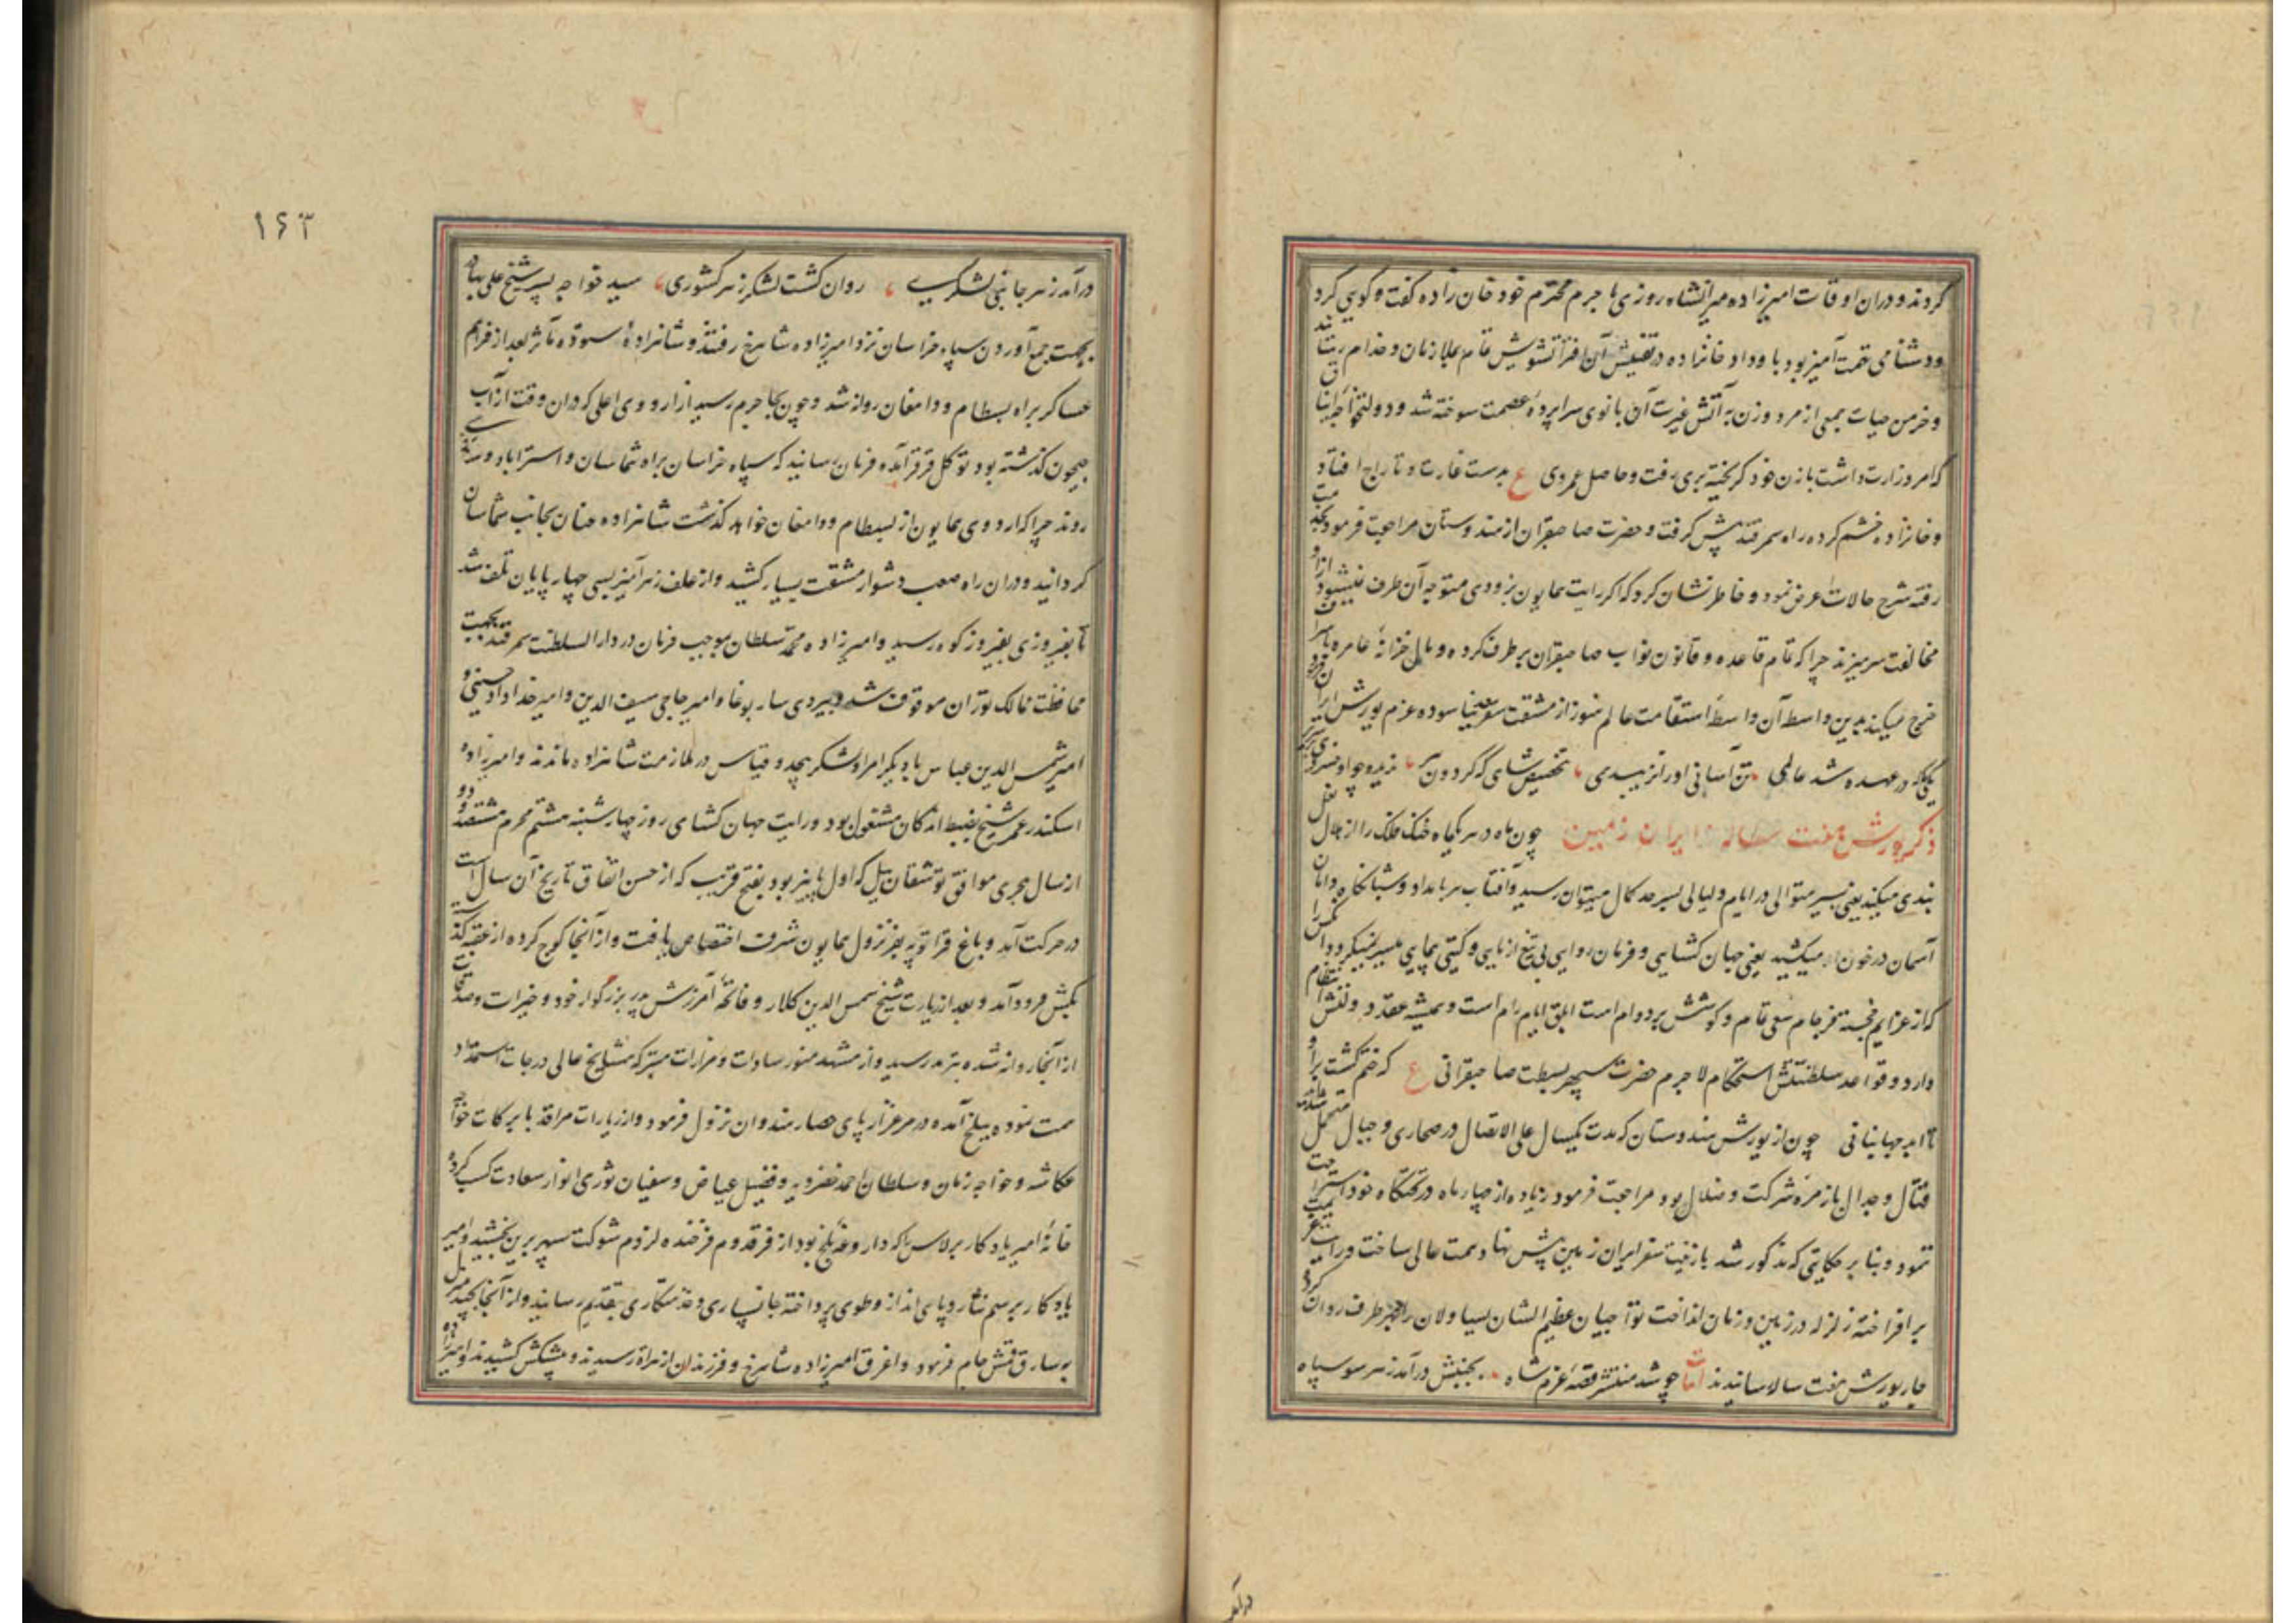 کردند و دران اوقات امیرزاده میرانشاه روزی با حرم محترم خود خان زاده گفت و کویی کرد
ودشنامی تهمت آمیز بود با و داد خانزاده در تفتیش آن افترا تشویش تمام بملازمان و خدام رسانید
و خرمن حیات جمعی از مرد و زن به آتش غیرت آن بانوی سراپرده عصمت سوخته شد و دولتخواجه ایناق
که امر وزارت داشت با زن خود کریخته بری رفت و حاصل عمر وی ع بدست غارت و تاراج افتاد
و خانزاده خشم کرده راه سمرقند پیش کرفت و حضرت صاحبقران از هندوستان مراجعت فرموده بخدمت
رفته شرح حالات عرض نمود و خاطرنشان کرد که اکر رایت همایون بزودی متوجه آن طرف نمیشود از او
مخالفت سر میزند چرا که تمام قاعده و قانون نواب صاحبقران برطرف کرده و مال خزانهٔ عامره باسراف
خرج میکند بدین واسطه آن واسطهٔ استقامت عالم هنوز از مشقت سفر نیاسوده عزم یورش ایران فرمود
یکی که در عهده شد عالمی تن آسانی او را نزیبد دمی بتخصیص شاهی که کردون سریر ندید و چو او خسروی
ذکر یورش هفت ساله ایران زمین چون ماه در هر یکماه خنک فلک را از هلال نعل
بندی میکند یعنی بسیر متوالی در ایام و لیالی بسرحد کمال میتوان رسید و آفتاب هر بامداد و شبانکاه دامان
آسمان در خون میکشد یعنی جهان کشایی و فرمان روایی بی تیغ ازمایی و کیتی پیمایی میسر نمیکردد آنکس را
که از عزایم خجسته فرجام سعی تمام و کوشش بر دوام است ابلق ایام رام است و همیشه عقد دولتش انتظام
دارد و قواعد سلطنتش استحکام لاجرم حضرت سپهر بسطت صاحبقرانی ع که ختم کشت برو
تا ابد جهانبانی چون از یورش هندوستان که مدت یکسال علی الاتصال در صحاری و جبال متحمل مشاق
قتال و جدال با زمرهٔ شرکت و ضلال بود مراجعت فرمود زیاده از چهار ماه در تختکاه خود استراحت
ننمود و بنا بر حکایتی که مذکور شد باز نیت سفر ایران زمین پیش نهاد همت عالی ساخت و رایت عزیمت
برافراخته زلزله در زمین و زمان انداخت تواجیان عظیم الشان یساولان را بهر طرف روان کرده
جار یورش هفت ساله رسانیدند ابیات چو شد منتشر قصهٔ عزم شاه بجنبش درآمد ز هر سو سپاه
درآمد
۱۶۳
درآمد ز هر جانبی لشکری روان کشت لشکر ز هر کشوری سید خواجه پسر شیخ علی بهادر
بجهت جمع آوردن سپاه خراسان نزد امیرزاده شاهرخ رفتند و شاهزادهٔ ستوده مآثر بعد از فراهم
عساکر براه بسطام و دامغان روانه شد و چون بجاجرم رسید از اردوی اعلی که دران وقت از آب
جیحون کذشته بود توکل قرقرا آمده فرمان رسانید که سپاه خراسان براه شماسان و استراباد و ساری
روند چرا که اردوی همایون از بسطام و دامغان خواهد کذشت شاهزاده عنان بجانب شماسان
کردانید و دران راه صعب دشوار مشقت بسیار کشید و از علف زهرآمیز بسی چهارپایان تلف شد
تا بفیروزی بفیروزکوه رسید و امیرزاده محمد سلطان بموجب فرمان در دار السلطنت سمرقند بجهت
محافظت ممالک توران موقوف شد و بیردی ساربوغا و امیر حاجی سیف الدین و امیر خداداد حسینی و
امیر شمس الدین عباس با دیکر امرا و لشکر بیحد و قیاس در ملازمت شاهزاده ماندند و امیرزاده
اسکندر عمر شیخ بضبط اندکان مشغول بود و رایت جهان کشای روز چهارشنبه هشتم محرم
از سال هجری موافق توشقان ییل که اول پاییز بود بفتح قریب که از حسن اتفاق تاریخ آن سال است
در حرکت آمد و باغ قراتوپه بفر نزول همایون شرف اختصاص یافت و از آنجا کوچ کرده از عقبه کذشته
بکش فرود آمد و بعد از زیارت شیخ شمس الدین کلار و فاتحهٔ آمرزش پدر بزرکوار خود و خیرات و صدقات
از آنجا روانه شده بترمد رسید و از مشهد منور سادات و مزارات متبرکه مشایخ عالی درجات استمداد
همت نموده ببلخ آمده در مرغزار پای حصار هندوان نزول فرمود و از زیارات مراقد با برکات خواجه
عکاشه و خواجه رمان و سلطان احمد خضرویه و فضیل عیاض و سفیان ثوری انوار سعادت کسب کرده
خانهٔ امیر یادکار برلاس را که داروغهٔ بلخ بود از فر قدوم فرخنده لزوم شوکت سپهر برین بخشید و امیر
یادکار برسم نثار و پای انداز و طوی پرداخته جانسپاری و خدمتکاری بتقدیم رسانید و از آنجا
به ساریق قمش جام فرمود و اغرق امیرزاده شاهرخ و فرزندان از هراة رسیدند و پیشکش کشیدند و امیرزاده